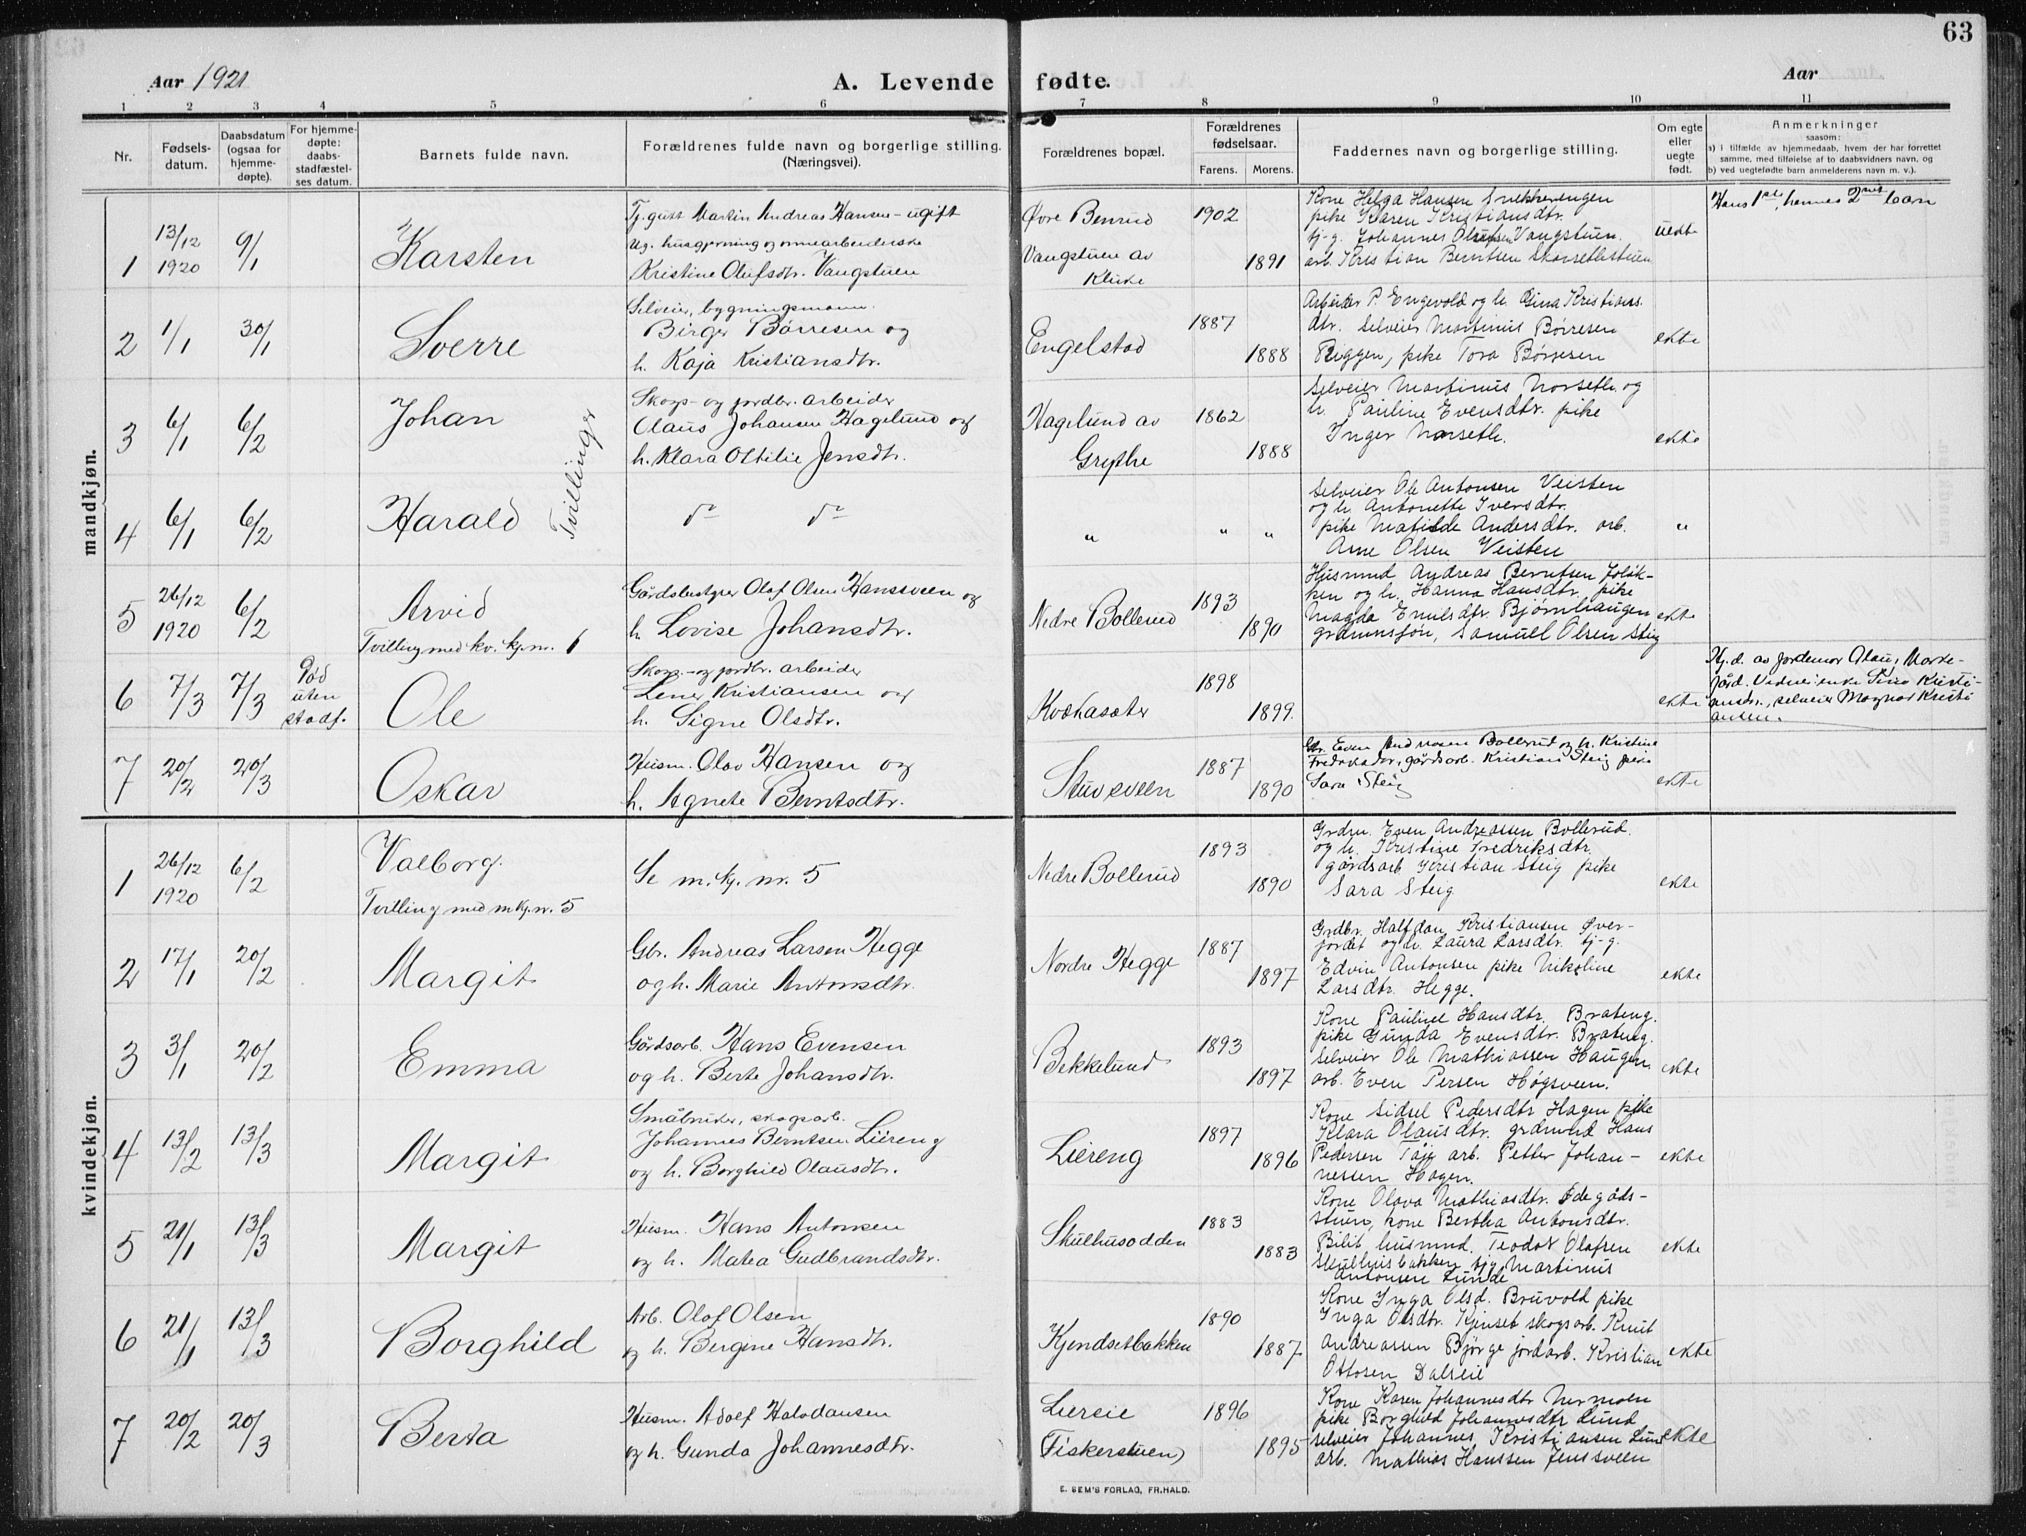 63
Aar 1921
A. Levende fødte.
Aar
1 2 3 4 5 6 7 8 9 10 11
Nr.
Fødsels-
datum.
Daabsdatum
(ogsaa for
hjemme-
døpte).
For hjemme-
døpte:
daabs-
stadfæstel-
ses datum.
Barnets fulde navn.
Forældrenes fulde navn og borgerlige stilling.
(Næringsvei).
Forældrenes bopæl.
Forældrenes
fødselsaar.
Farens. Morens.
Faddernes navn og borgerlige stilling.
Om egte
eller
uegte
født.
Anmerkninger
saasom:
a) i tilfælde av hjemmedaab, hvem der har forrettet
samme, med tilføielse af to daabsvidners navn, og
b) ved uegtefødte barn anmelderens navn m. v.).
mandkjøn.
1 13/12 1920 9/1 Karsten
Tj.gutt Martin Andreas Hansen - ugift
Ug.
Kristine Olufsdtr. Vangstuen
Øvre Benrud
Vangstuen av
1902 1891
Kone Helga Hansen Snekkerengen
pike Karen Kristiansdtr.
tj-g. Johannes Vangstuen.
arb. Kristian Berntsen
uedte
Hans 1ste, hennes 2net barn
2 1/1 30/1 Sverre
Selveier, bygningsmann.
Birger Børresen og
h. Kaja Kristiansdtr.
Engelstad
1887 1888
Arbeider P. Engevold og h. Gina Kristians-
dtr. selveier Martinus Børresen
Riggen, pike Tora Børresen
ekte
3 6/1 6/2 Johan
Tvillinger
Skogs- og jordbr. arbeider
Olaus Johansen Hagelund og
h. Klara Ottilie Jensdtr.
Hagelund av
Grythe
1862 1888
Selveier Martinus Norseth og
h. Pauline Evensdtr. pike
Inger Norseth.
ekte
4 6/1 6/2 Harald
do do
" " "
Selveier Ole Antonsen Veisten
og h. Antonette Iversdtr.
pike Matilde Andersdtr. arb.
Arne Olsen Veisten
"
5 26/12 1920 6/2 Arvid
Tvilling med kv. kj. nr. 1
Gårdsbestyrer Olaf Olsen Hanssveen og
h. Lovise Johansdtr.
Nedre Bollerud
1893 1890
Husmnd Andreas Berntsen
og h. Hanna Hansdtr. pike
Magda Emilsdtr. Bjørnhaugen
Samuel Olsen Steig
ekte
6 7/3 7/3
Død
uten
stadf.
Ole
Skogs- og jordbr. arbeider
Kristiansen og
h. Signe Olsdtr.
Kvekasæter
1898 1899.
ekte
Hj.d. av jordemor
selveier Magnar Kristi-
ansen.
7 20/2 20/3 Oskar
Husm. Olav Hansen og
h. Agnete Berntsdtr.
Stuvsveen
1887 1890
Gbr. Even Andreasen Bollerud og h. Kristine
Fredriksdtr, gårdsarb. Kristian Steig pike
Sara Steig
ekte
kvindekjøn.
1 26/12 1920 6/2 Valborg.
Tvilling med m.kj. nr. 5
Se m. kj. nr. 5
Nedre Bollerud
1893 1890
Grdm. Even Andreassen Bollerud
og h. Kristine Fredriksdtr.
gårdsarb Kristian Steig pike
Sara Steig
ekte
2 17/1 20/2 Margit
Gbr. Andreas Larsen Hegge
og h. Marie Antonsdtr.
Nordre Hegge
1887 1897
Grdbr. Halfdan Kristiansen Øver-
jordet og h. Laura Larsdtr. tj-g.
Edvin Antonsen pike Nikoline
Larsdtr. Hegge.
ekte
3 3/1 20/2 Emma
Gårdsarb. Hans Evensen
og h. Berte Johansdtr.
Bekkelund
1893 1897
Kone Pauline Hansdtr. Brateng.
pike Gunda Evensdtr. Brateng.
selveier Ole Mathiassen Haugen
arb. Even Persen Høgsveen.
ekte
4 13/2 13/3 Margit
Småbruker, skogsarb.
Johannes Berntsen Liereng
og h. Borghild Olausdtr.
Liereng
1897 1896
Kone Sidsel Pedersdtr Hagen pike
Klara Olausdtr. grdmnd Hans
Pedersen arb. Petter Johan-
nessen Hagen.
ekte
5 21/1 13/3 Margit
Husm. Hans Antonsen
og h. Matea Gudbrandsdtr.
Skulhusodden
1883 1883
Kone Olava Mathiasdtr. Ødegåds-
stuen, kone Bertha Antonsdtr.
Bilit husmnd. Teodor Olafsen
Skulhusbakken tjg Martinus
Antonsen Lunde
ekte
6 21/1 13/3 Borghild
Arb. Olof Olsen
og h. Bergine Hansdtr.
Kjendsetbakken
1890 1887
Kone Inga Olsd. Bruvold pike
Inga Olsdtr. Kjenset skogsarb. Knut
Andreassen Bjørge jordarb. Kristian
Ottosen Dalseie
ekte
7 20/2 20/3 Berta
Husm. Adolf Halvdansen
og h. Gunda Johannesdtr.
Liereie
(Fiskerstuen)
1896 1895
Kone Karen Johannesdtr Nermoen
pike Borghild Johannesdtr Lund
selveier Johannes Kristiansen Lund
arb. Mathias Hanssen Jenssveen
ekte
E. SEM'S FORLAG, FR.HALD.